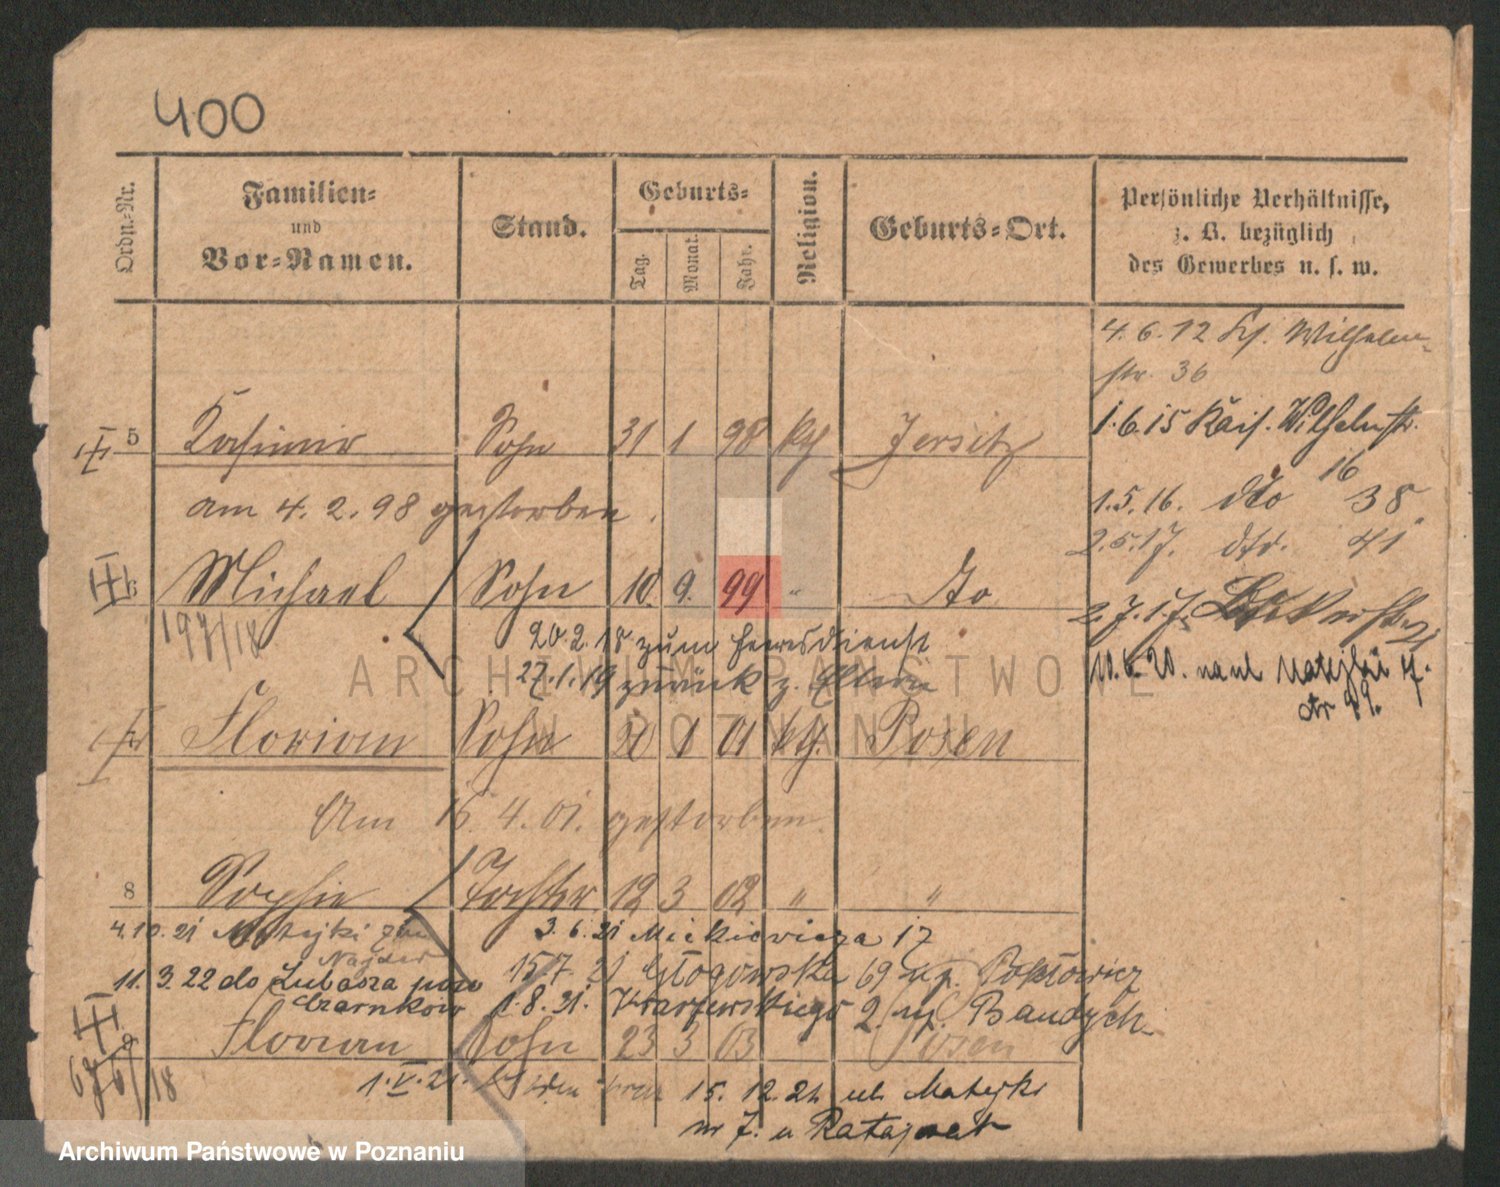 400
Ordn.-Nr.
Familien-
und
Vor-Namen.
Stand.
Geburts-
Tag.
Monat.
Jahr.
Religion.
Geburts-Ort.
Persönliche Verhältnisse,
z. B. bezüglich
des Gewerbes u. s. w.
4.6.12 Wilhelm-
str. 36
5 Kasimir Sohn 31 1 98 kth Jersitz
1.6.15 Kais. Wilhelmstr.
16
am 4.2.98 gestorben.
1.5.16. dto 38
2.5.17. dto. 41
6 Michael Sohn 10. 9. 99 " dto
2.7.17.
197/18
20.2.18 zum Heeresdienst
27.1.19 zurück z. Eltern
10.6.20. nach Matejki
Nr
ARCHIWUM PAŃSTWOWE
W POZNANIU
Florian Sohn 20 1 01 kth. Posen
Am 15.4.01. gestorben.
8 Sophie Tochter 12 3 02 " "
4.10.21 Matejki
3.6.21 Mickiewicza 17
11.3.22 do Lubasza pow
Czarnków
15.7.21 Głogowska 69
1.8.21. Kraszewskiego 2.
Florian Sohn 23 3 03 " Posen
18
1.V.21.
15.12.21 ul. Matejki
nr 7. u Ratajczak
Archiwum Państwowe w Poznaniu